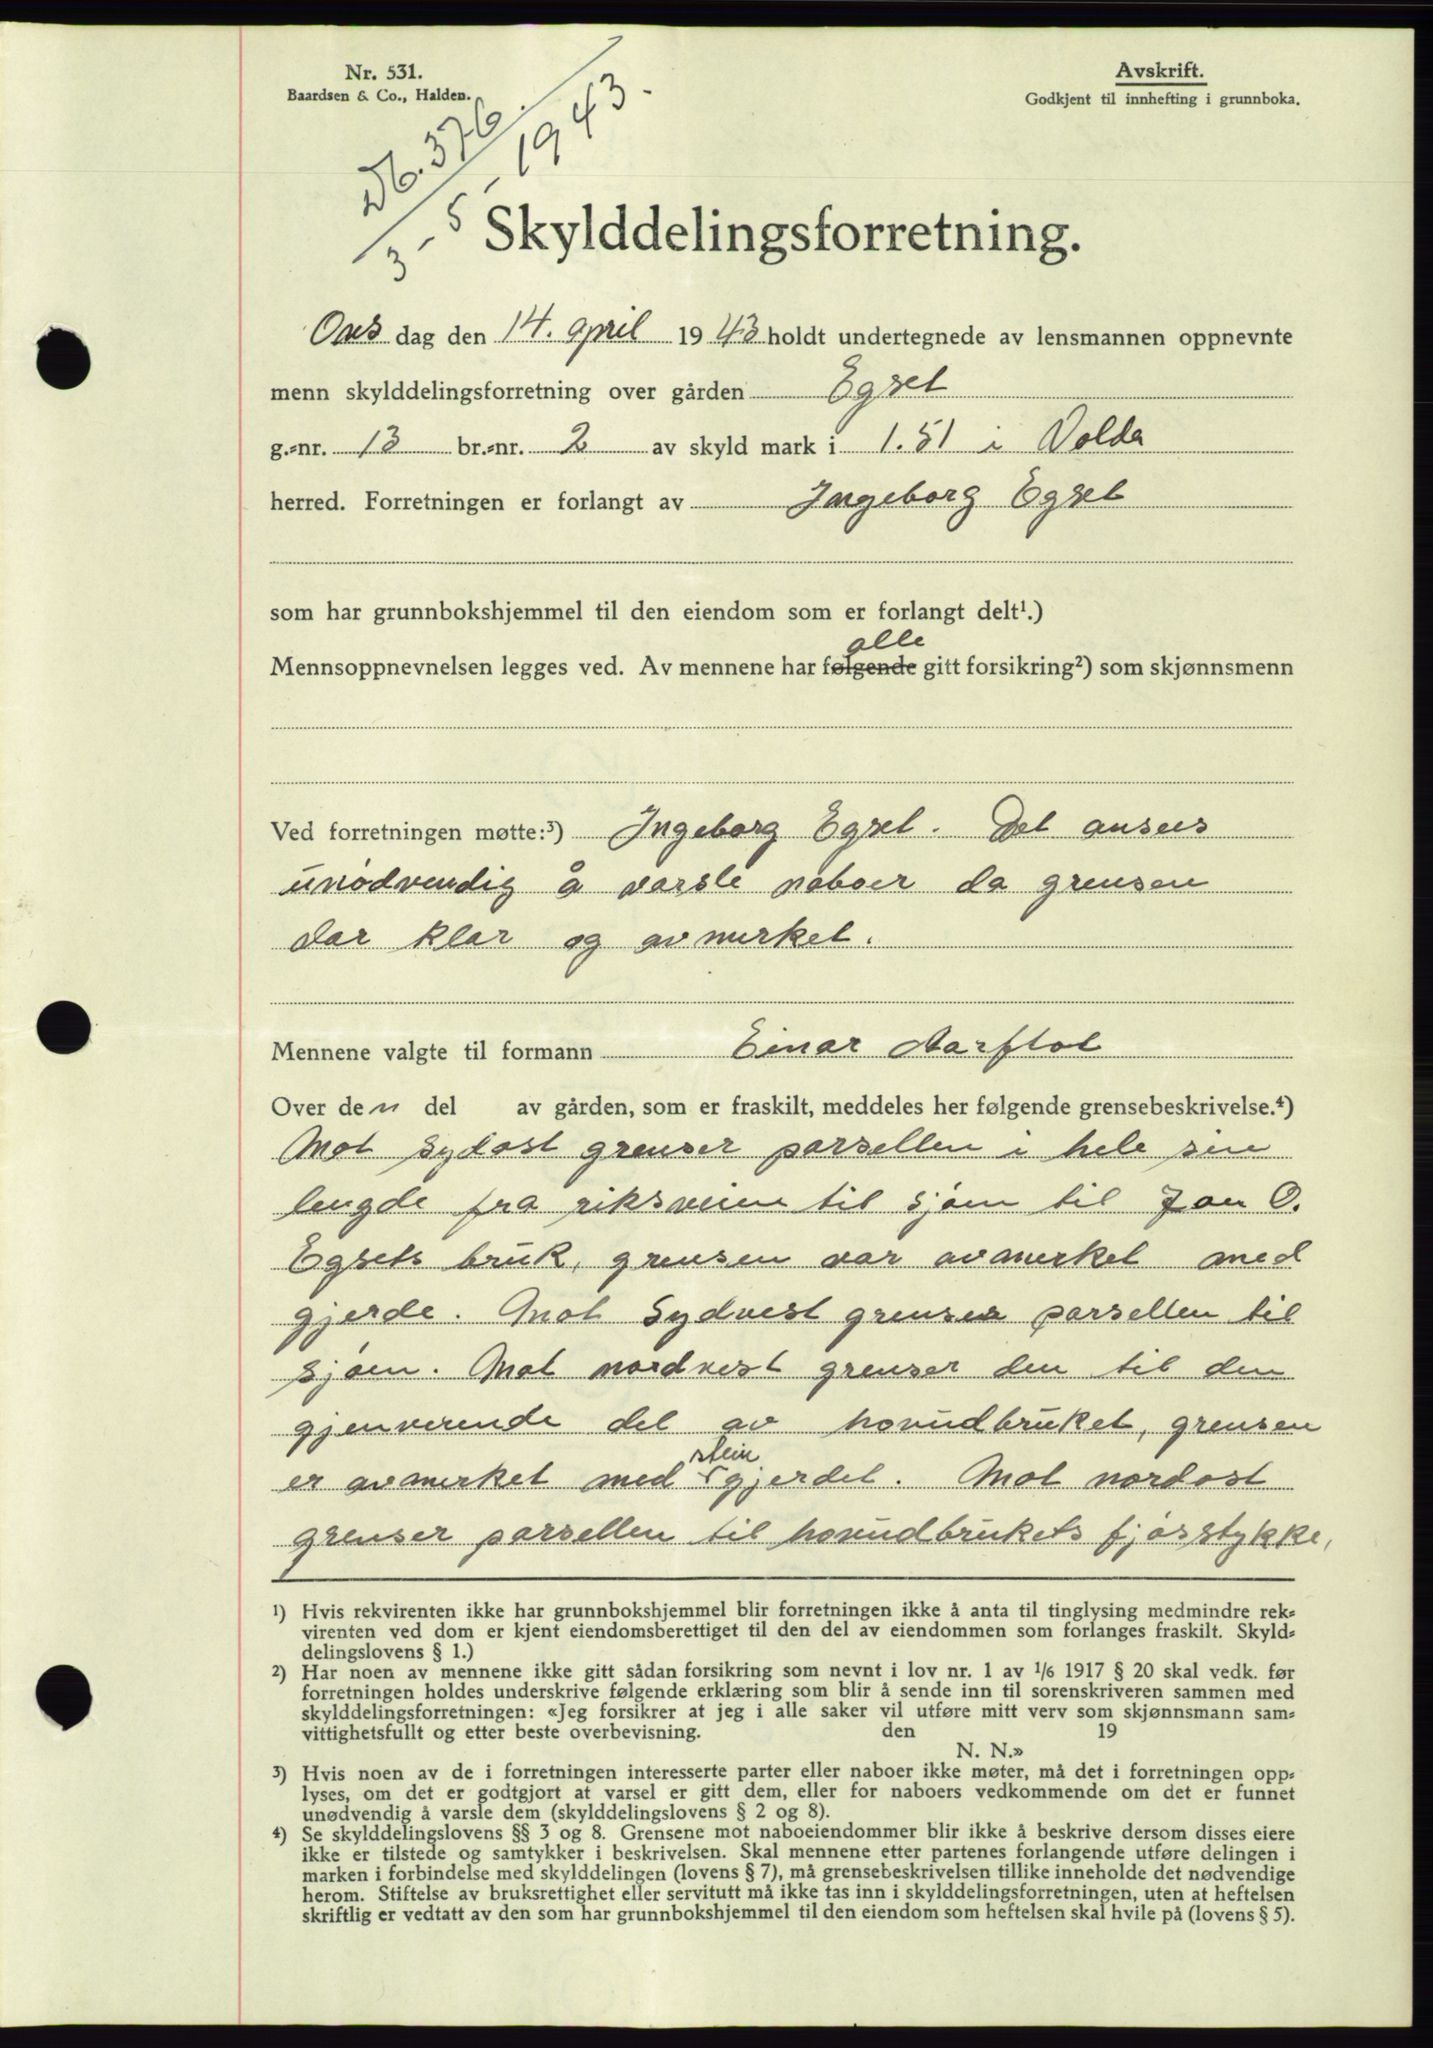 Nr. 531.
Baardsen & Co., Halden.
Avskrift.
Godkjent til innhefting i grunnboka.
Db. 376.
3 - 5 - 1943.
Skylddelingsforretning.
Ons dag den 14. april 1943 holdt undertegnede av lensmannen oppnevnte
menn skylddelingsforretning over gården Egset
g.-nr. 13 br.-nr. 2 av skyld mark i 1.51 i Volda
herred. Forretningen er forlangt av Ingeborg Egset
som har grunnbokshjemmel til den eiendom som er forlangt delt¹.)
alle
Mennsoppnevnelsen legges ved. Av mennene har følgende gitt forsikring²) som skjønnsmenn
Ved forretningen møtte:³) Ingeborg Egset. Det ansees
unødvendig å varsle naboer da grensen
var klar og avmerket.
Mennene valgte til formann Einar Aarflot
Over den del av gården, som er fraskilt, meddeles her følgende grensebeskrivelse.⁴)
Mot sydøst grenser parsellen i hele sin
lengde fra riksveien til sjøen til Jon O.
Egsets bruk, grensen var avmerket med
gjerde. Mot Sydvest grenser parsellen til
sjøen. Mot nordvest grenser den til den
gjenverende del av hovudbruket, grensen
stein
er avmerket med gjerdet. Mot nordøst
grenser parsellen til hovudbrukets fjøsstykke,
¹) Hvis rekvirenten ikke har grunnbokshjemmel blir forretningen ikke å anta til tinglysing medmindre rek-
virenten ved dom er kjent eiendomsberettiget til den del av eiendommen som forlanges fraskilt. Skyld-
delingslovens § 1.)
²) Har noen av mennene ikke gitt sådan forsikring som nevnt i lov nr. 1 av 1/6 1917 § 20 skal vedk. før
forretningen holdes underskrive følgende erklæring som blir å sende inn til sorenskriveren sammen med
skylddelingsforretningen: «Jeg forsikrer at jeg i alle saker vil utføre mitt verv som skjønnsmann sam-
vittighetsfullt og etter beste overbevisning. den 19
N. N.»
³) Hvis noen av de i forretningen interesserte parter eller naboer ikke møter, må det i forretningen opp-
lyses, om det er godtgjort at varsel er gitt dem, eller for naboers vedkommende om det er funnet
unødvendig å varsle dem (skylddelingslovens § 2 og 8).
⁴) Se skylddelingslovens §§ 3 og 8. Grensene mot naboeiendommer blir ikke å beskrive dersom disses eiere
ikke er tilstede og samtykker i beskrivelsen. Skal mennene etter partenes forlangende utføre delingen i
marken i forbindelse med skylddelingen (lovens § 7), må grensebeskrivelsen tillike inneholde det nødvendige
herom. Stiftelse av bruksrettighet eller servitutt må ikke tas inn i skylddelingsforretningen, uten at heftelsen
skriftlig er vedtatt av den som har grunnbokshjemmel til den eiendom som heftelsen skal hvile på (lovens § 5).